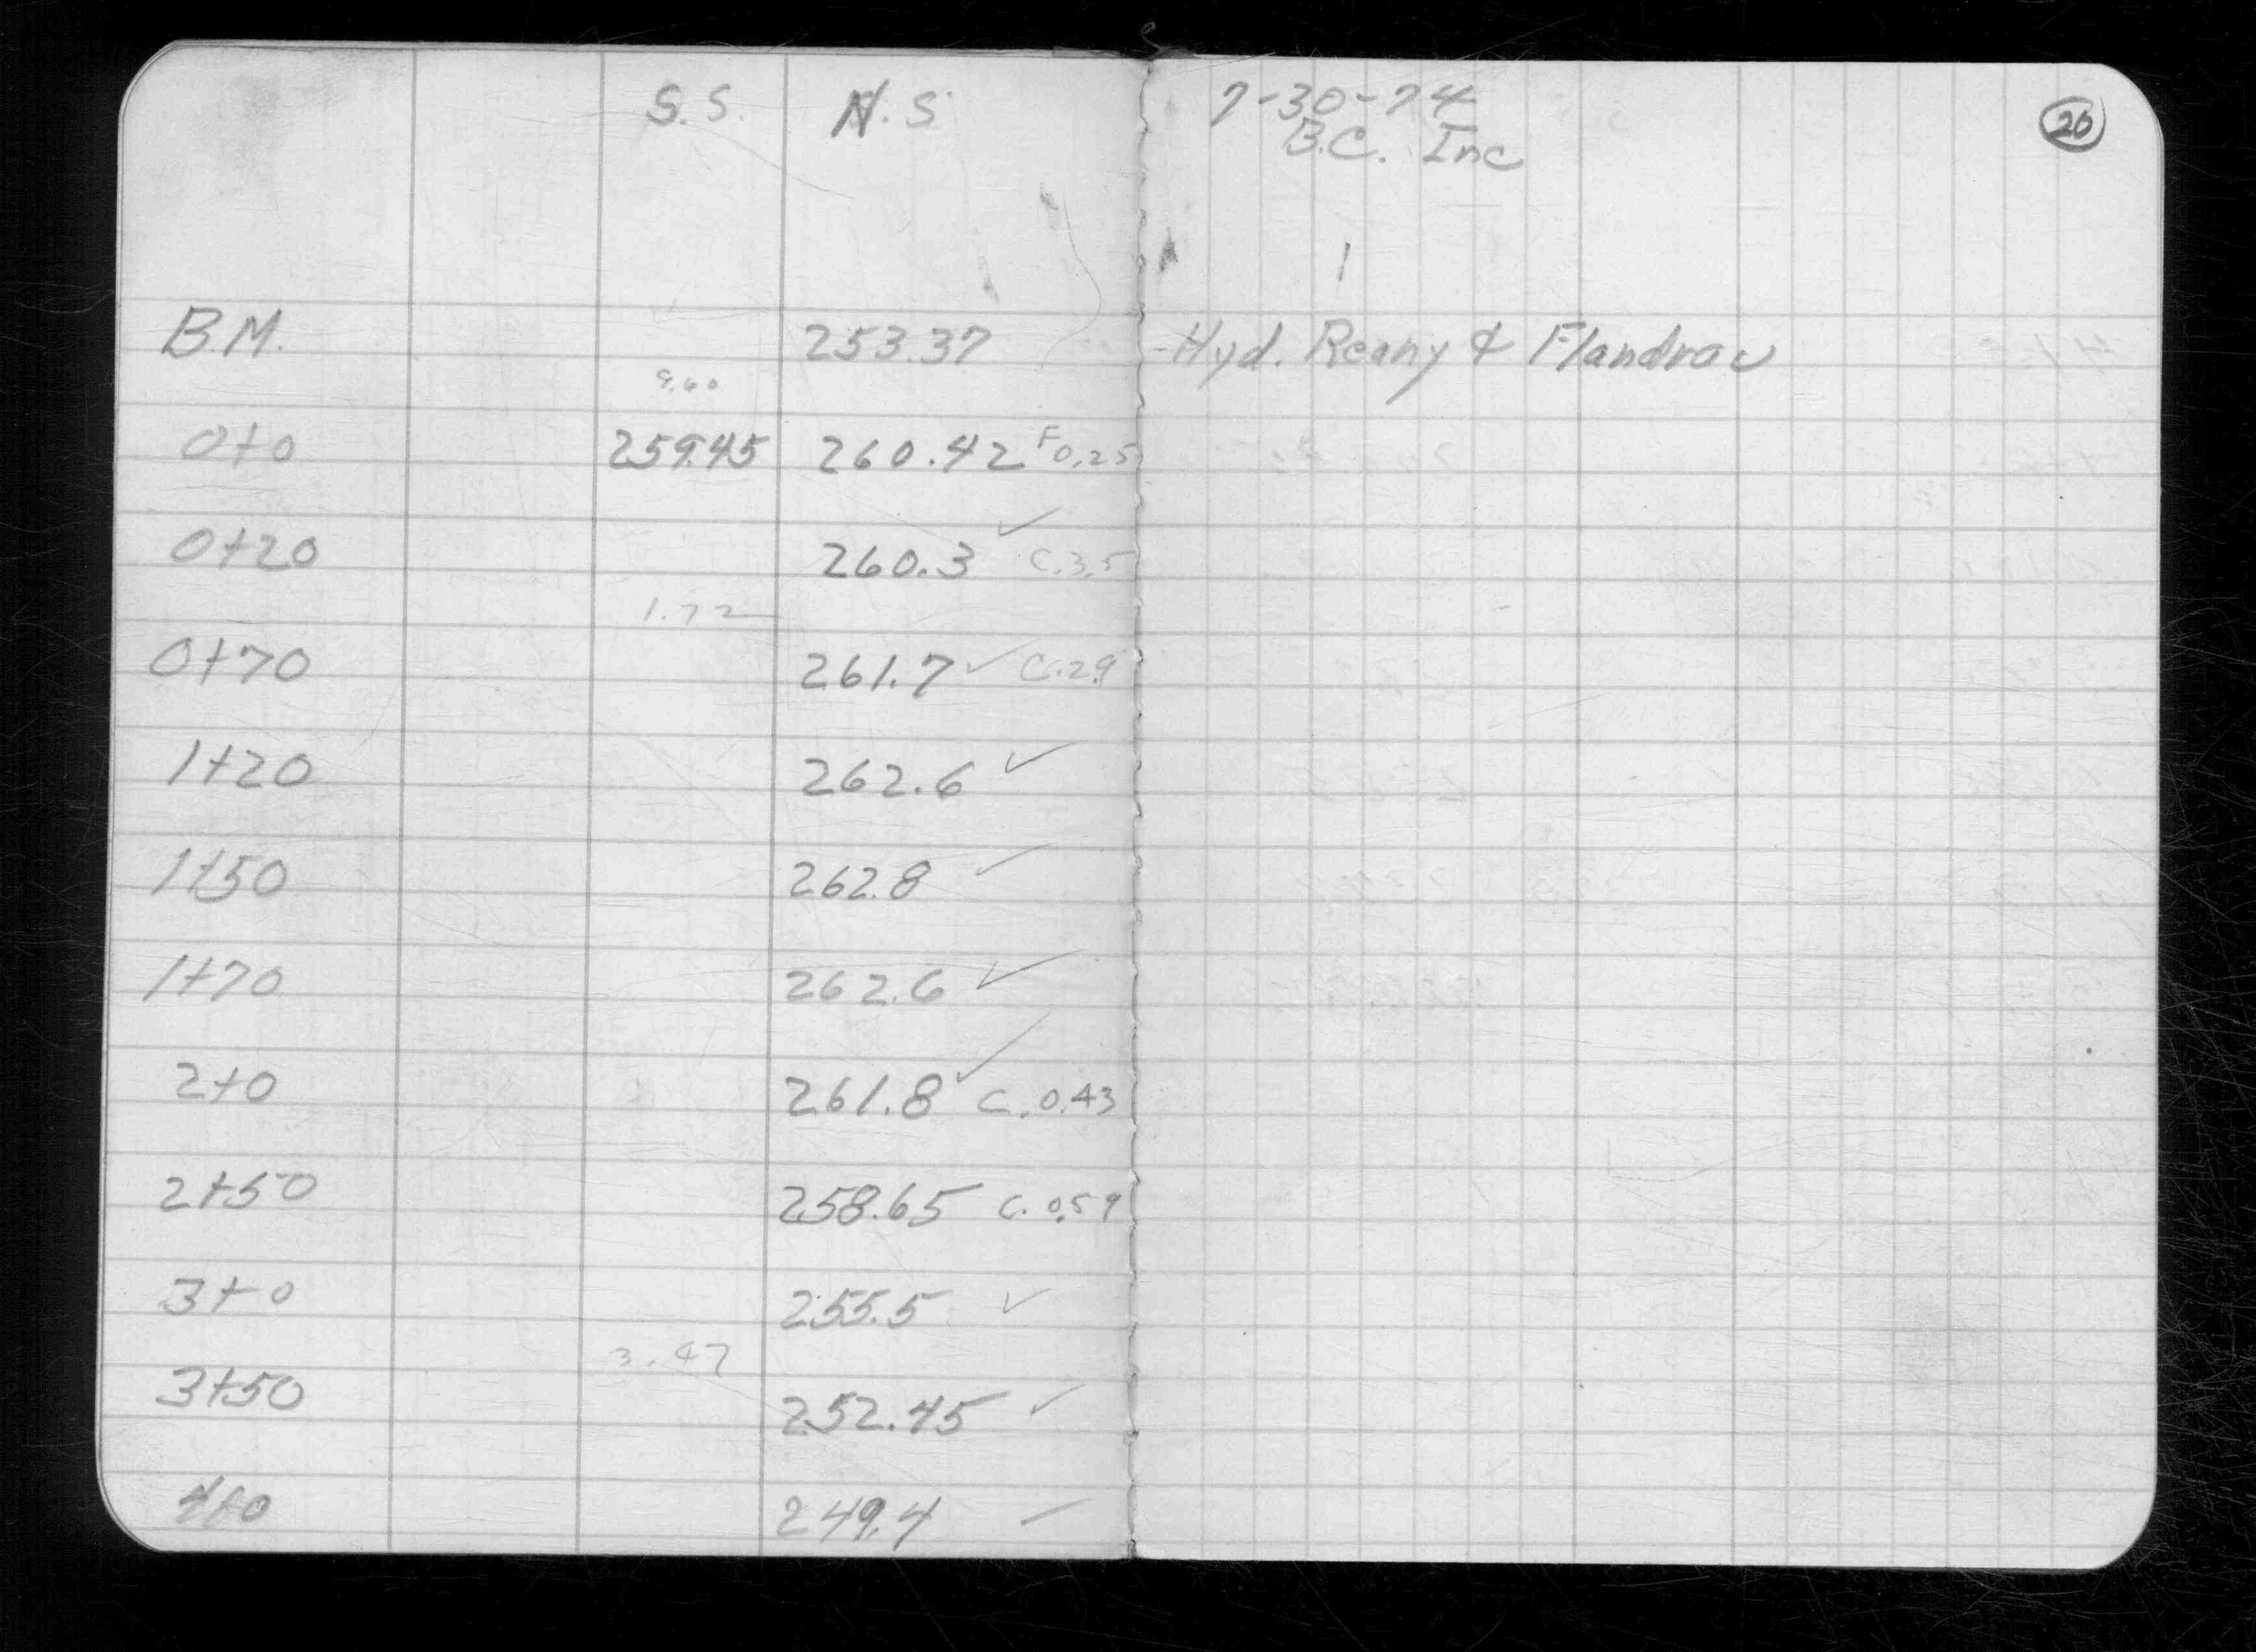 S.S. N.S
7-30-74
B.C. Inc
26
B.M. 253.37 Hyd. Reany & Flandrau
9.60
0+0 259.45 260.42 F 0.25
0+20 260.3 ✓ C.3.5
1.72
0+70 261.7 ✓ C.2.9
1+20 262.6 ✓
1+50 262.8 ✓
1+70 262.6 ✓
2+0 261.8 ✓ C.0.43
2+50 258.65 C.0.59
3+0 255.5 ✓
3.47
3+50 252.45 ✓
4+0 249.4